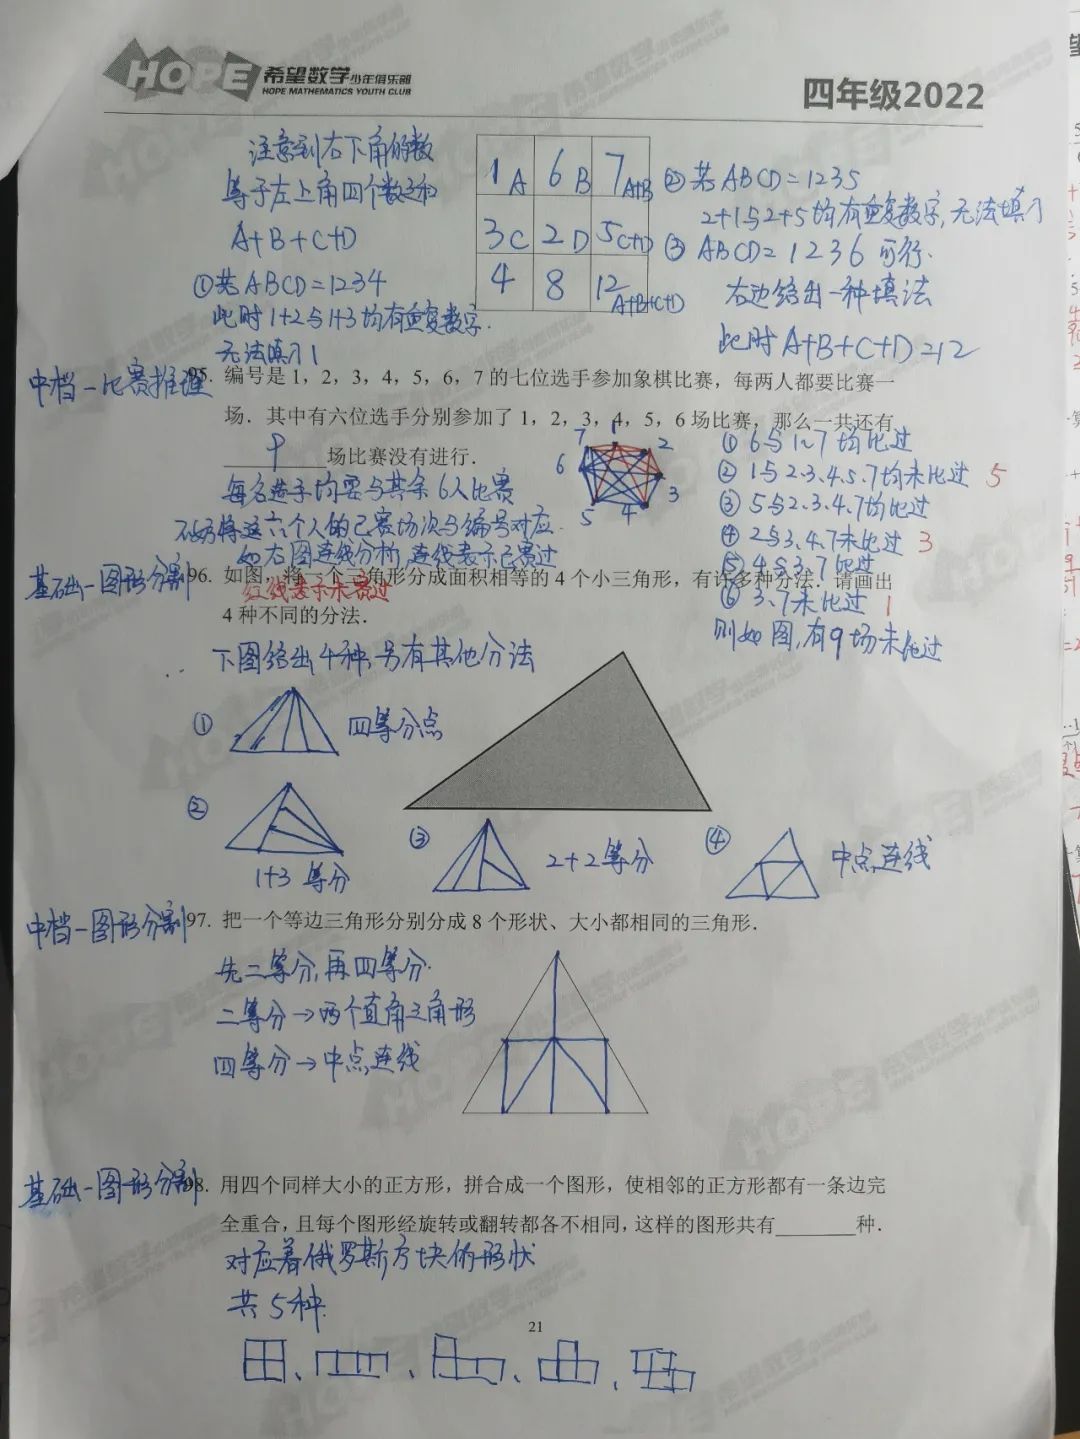 HOPE 希望数学少年俱乐部
HOPE MATHEMATICS YOUTH CLUB
四年级2022
注意到右下角的数
等于左上角四个数之和
A+B+C+D
①若ABCD=1234
此时1+2与1+3均有重复数字.
无法填入
1A 6B 7A+B
3C 2D 5C+D
4 8 12A+B+C+D
②若ABCD=1235
2+1与2+5均有重复数字,无法填入
③ABCD=1236可行.
右边给出一种填法
此时A+B+C+D=12
中档-比赛推理
95. 编号是1，2，3，4，5，6，7的七位选手参加象棋比赛，每两人都要比赛一
场．其中有六位选手分别参加了1，2，3，4，5，6场比赛，那么一共还有
9场比赛没有进行．
每名选手均要与其余6人比赛
不妨将这六个人的已赛场次与编号对应.
如右图连线分析,连线表示已赛过
红线表示未赛过
1
2
3
4
5
6
7
①6与1~7均比过
②1与2.3.4.5.7均未比过 5
③5与2.3.4.7均比过
④2与3、4.7未比过 3
⑤4与3、7比过
⑥3、7未比过 1
则如图,有9场未比过
基础-图形分割
96. 如图，将一个三角形分成面积相等的4个小三角形，有许多种分法．请画出
4种不同的分法．
下图给出4种,另有其他分法
① 四等分点
② 1+3等分
③ 2+2等分
④ 中点连线
中档-图形分割
97. 把一个等边三角形分别分成8个形状、大小都相同的三角形．
先二等分,再四等分.
二等分→两个直角三角形
四等分→中点连线
基础-图形分割
98. 用四个同样大小的正方形，拼合成一个图形，使相邻的正方形都有一条边完
全重合，且每个图形经旋转或翻转都各不相同，这样的图形共有________种．
对应着俄罗斯方块的形状
共5种.
21